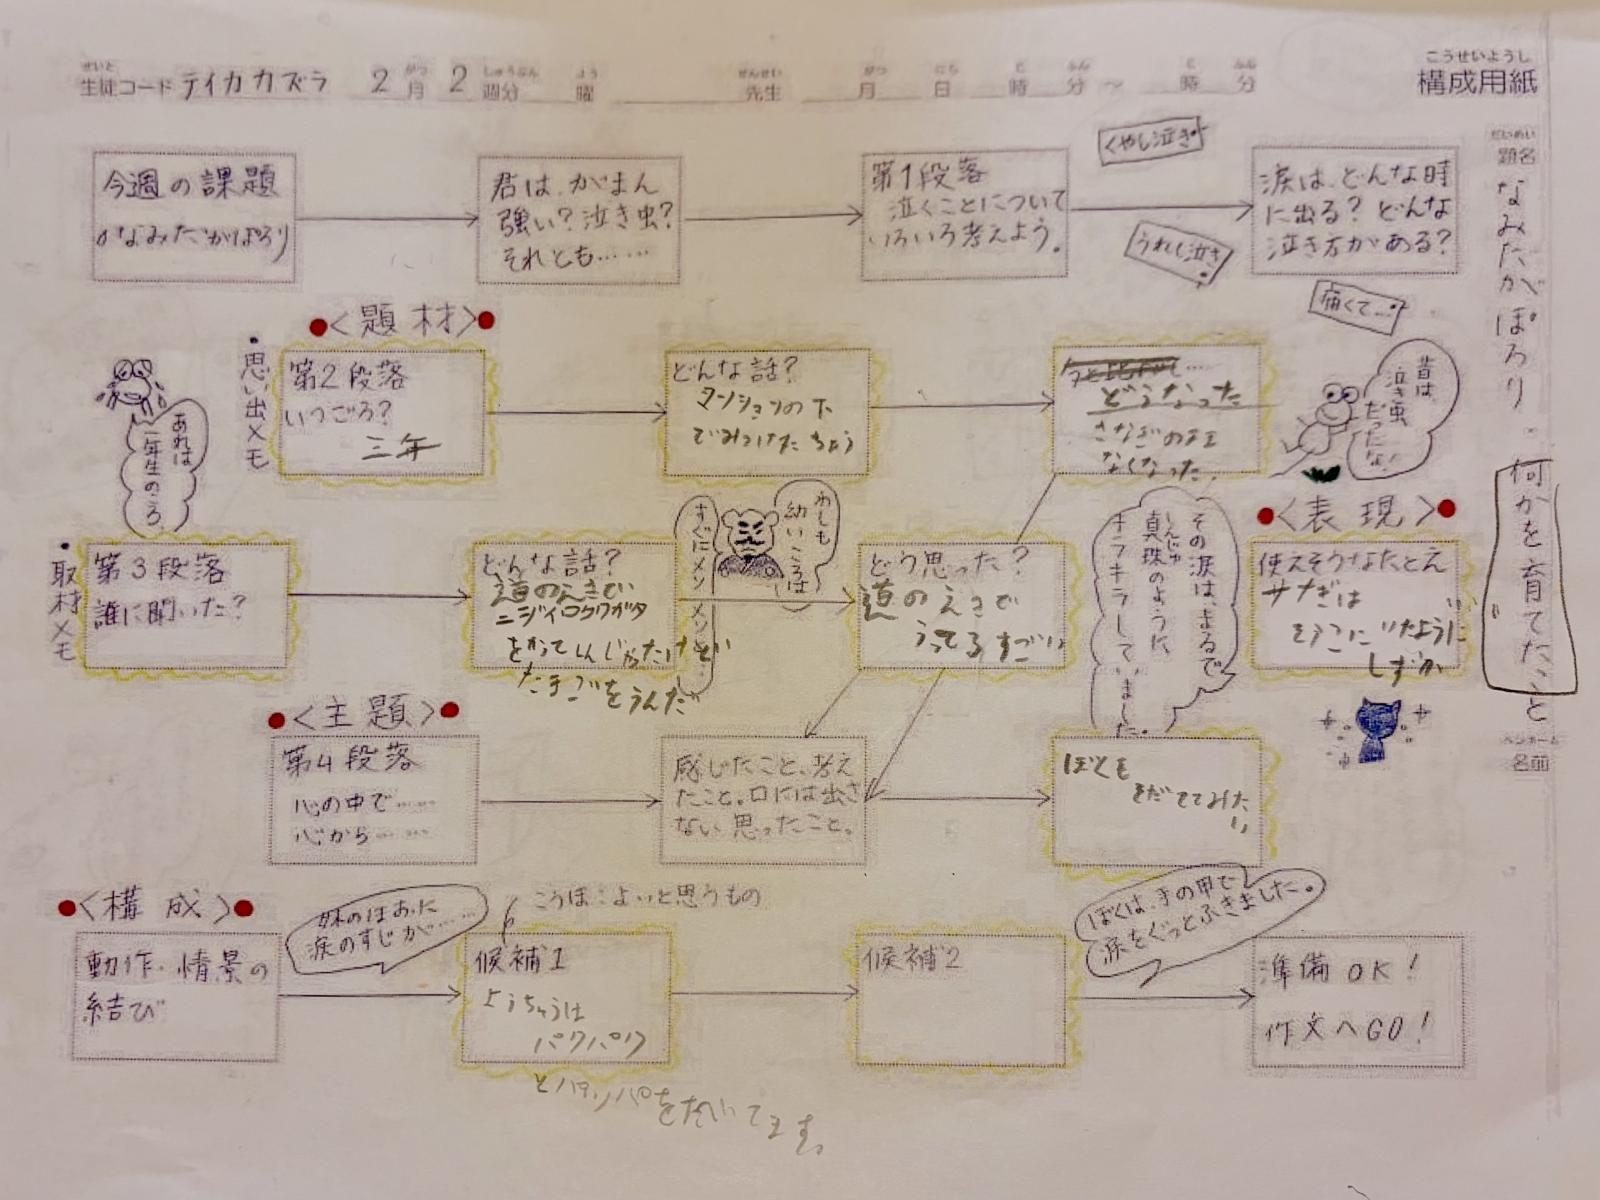 構成用紙
こうせいようし
生徒コード テイカカズラ 2月 2週分 曜 先生 月 日 時 分 〜 時 分
せいと がつ しゅうぶん よう せんせい がつ にち じ ふん じ ふん
だいめい
題名
なみだがぽろり・何かを育てたこと
ペンネーム
名前
今週の課題
なみだがぽろり
君は、がまん
強い?泣き虫?
それとも……
第1段落
泣くことについて
いろいろ考えよう。
くやし泣き
うれし泣き
痛くて…
涙は、どんな時
に出る?どんな
泣き方がある?
<題材>
・思い出メモ
第2段落
いつごろ?
三年
どんな話?
マンションの下
でみつけたちょう
どうなった
さなぎのまま
なくなった
昔は、
泣き虫
だったな。
あれは
一年生のころ
・取材メモ
第3段落
誰に聞いた?
どんな話?
道のえきで
ニジイロクワガタ
をかってしんじゃったけど
たまごをうんだ
わしも
幼いころは
すぐにメソメソと
どう思った?
道のえきで
うってるすごい
その涙は、まるで
真珠のように
しんじゅ
キラキラしていました。
<表現>
使えそうなたとえ
サナギは
そこに"いたように"
しずか
<主題>
第4段落
心の中で……
心から……
感じたこと、考え
たこと。口には出さ
ない思ったこと。
ぼくも
そだててみた
い
<構成>
動作・情景の
結び
妹のほおに
涙のすじが……
こうほ:よいと思うもの
候補1
ようちゅうは
パクパク
とハッパをたいてます。
候補2
ぼくは、手の甲で
涙をぐっとふきました。
準備OK!
作文へGO!